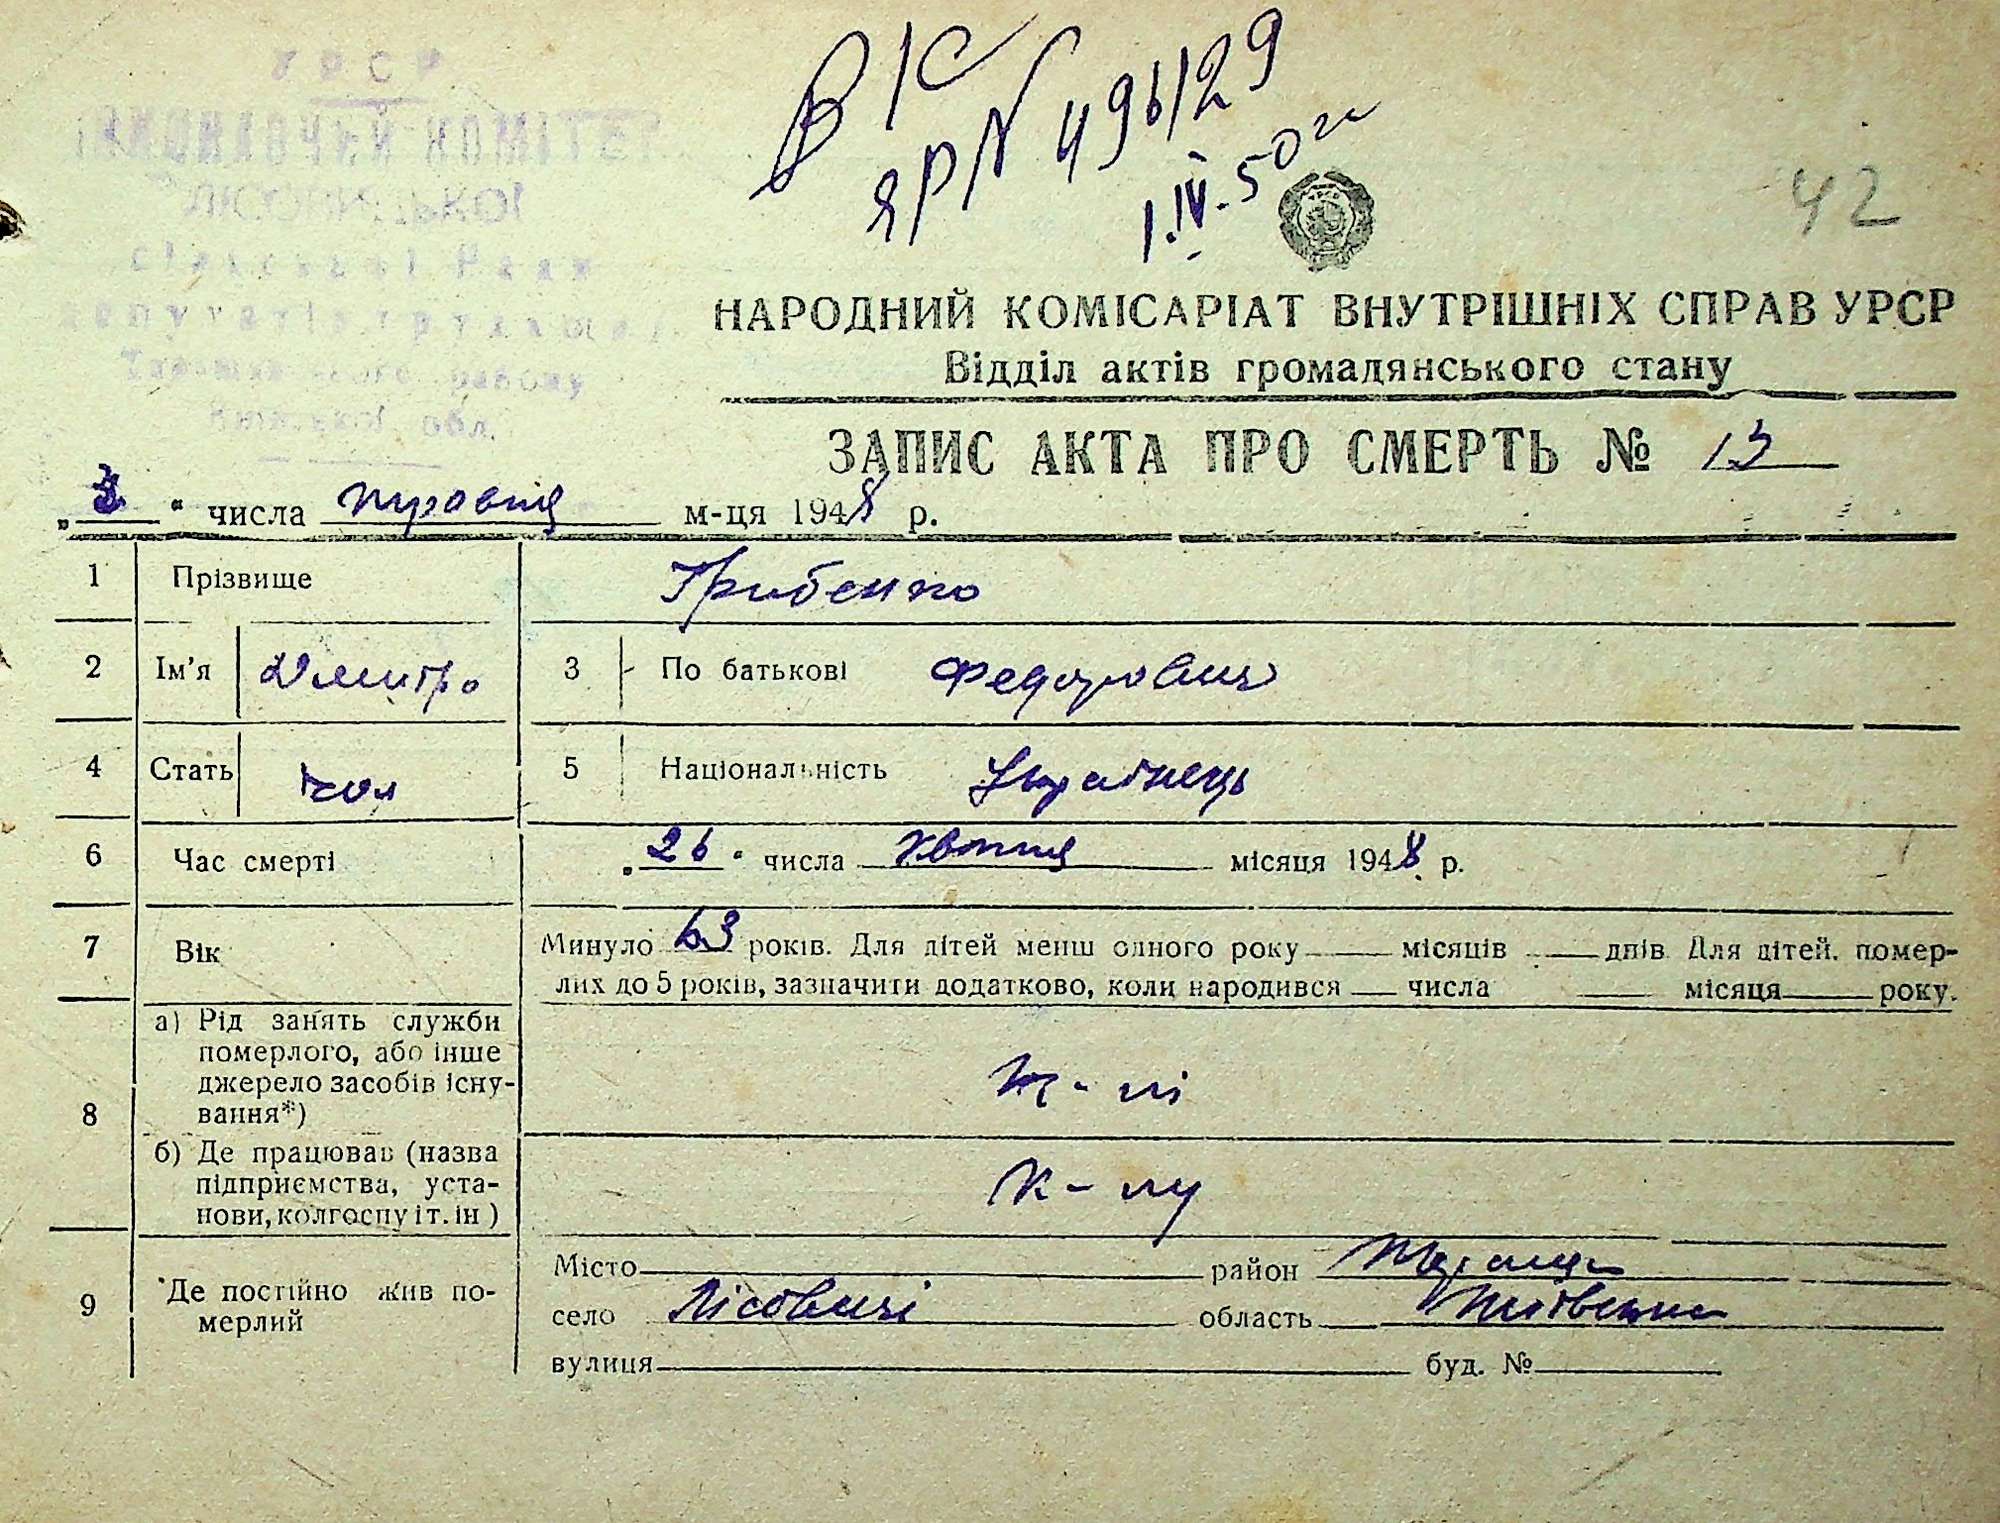 УРСР
ВИКОНАВЧИЙ КОМІТЕТ
ЛІСОВИЦЬКОЇ
сільської Ради
депутатів трудящих
Таращанського району
Київської обл.
В/С
ЯР N 496129
1.IV.50 г
42
НАРОДНИЙ КОМІСАРІАТ ВНУТРІШНІХ СПРАВ УРСР
Відділ актів громадянського стану
ЗАПИС АКТА ПРО СМЕРТЬ № 13
„3“ числа травня м-ця 1948 р.
1 Прізвище Грибенко
2 Ім'я Дмитро 3 По батькові Федорович
4 Стать чол 5 Національність Українець
6 Час смерті „26“ числа квітня місяця 1948 р.
7 Вік Минуло 63 років. Для дітей менш одного року місяців днів Для дітей, помер-
лих до 5 років, зазначити додатково, коли народився числа місяця року.
8 а) Рід занять служби
померлого, або інше
джерело засобів існу-
вання*)
б) Де працював (назва
підприємства, уста-
нови, колгоспу і т. ін)
9 Де постійно жив по-
мерлий
Місто район Таращан
село Лісовичі область Київська
вулиця буд. №